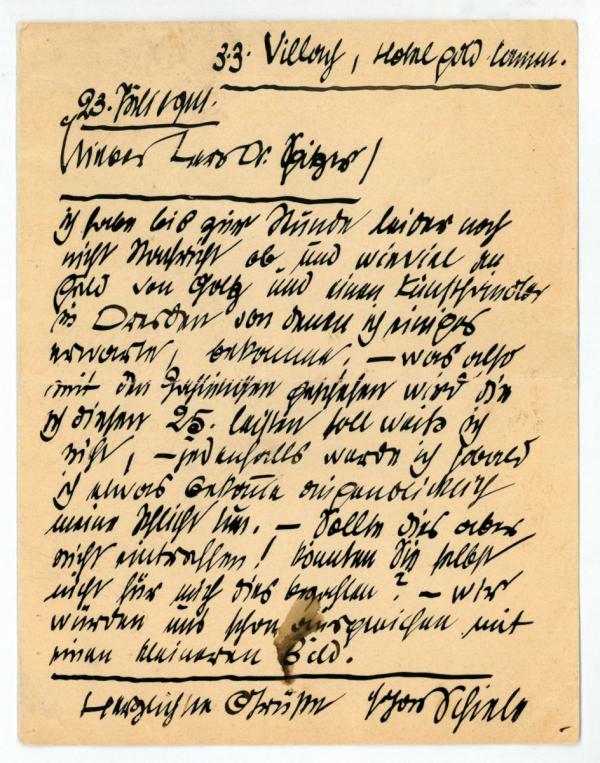 z.Z. Villach, Hotel gold Lamm.
23. Juli 1911.
Lieber Herr Dr. Spitzer!
ich habe bis zur Stunde leider noch
nicht Nachricht ob und wieviel an
Geld von Goltz und einen Kunsthändler
in Dresden von denen ich einiges
erwarte, bekomme. – was also
mit den Zahlungen geschehen wird die
ich diesen 25. leisten soll weiß ich
nicht, – jedenfalls werde ich sobald
ich etwas bekomme augenblicklich
meine Pflicht tun. – Sollte dies aber
nicht eintreffen! könnten Sie selbst
nicht für mich dies bezahlen? – wir
würden uns schon ausgleichen mit
einen kleineren Bild.
Herzliche Grüße Schiele